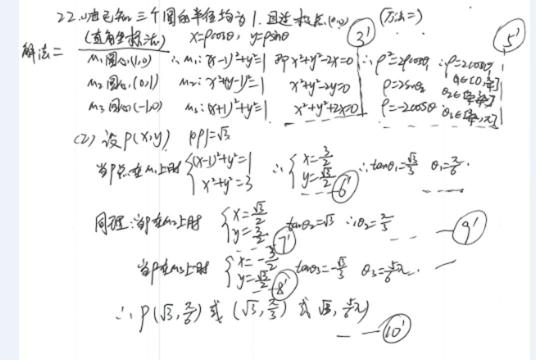 22. (1) 由已知三个圆的半径均为1. 且过极点(0,0) (方法二)
解法二 (直角坐标法) x=ρcosθ, y=ρsinθ 3' 5'
M₁圆心(1,0) ∴M₁: (x-1)²+y²=1 即x²+y²-2x=0 ∴ρ²=2ρcosθ ∴ρ=2cosθ θ₁∈[0,π/4]
M₂圆心(0,1) M₂: x²+(y-1)²=1 x²+y²-2y=0 ρ=2sinθ θ₂∈[π/4,3π/4]
M₃圆心(-1,0) M₃: (x+1)²+y²=1 x²+y²+2x=0 ρ=-2cosθ θ₃∈[3π/4,π]
(2) 设P(x,y) |OP|=√3
当P点在M₁上时 {(x-1)²+y²=1 x²+y²=3 ∴{x=3/2 y=√3/2 ∴tanθ₁=√3/3 θ₁=π/6. 6'
同理: 当P在M₂上时 {x=√3/2 y=3/2 tanθ₂=√3 ∴θ₂=π/3 7' 9'
当P在M₃上时 {x=-3/2 y=√3/2 tanθ₃=-√3/3 θ₃=5/6π. 8'
∴P(√3,π/6) 或 (√3,π/3) 或 (√3,5/6π)
10'